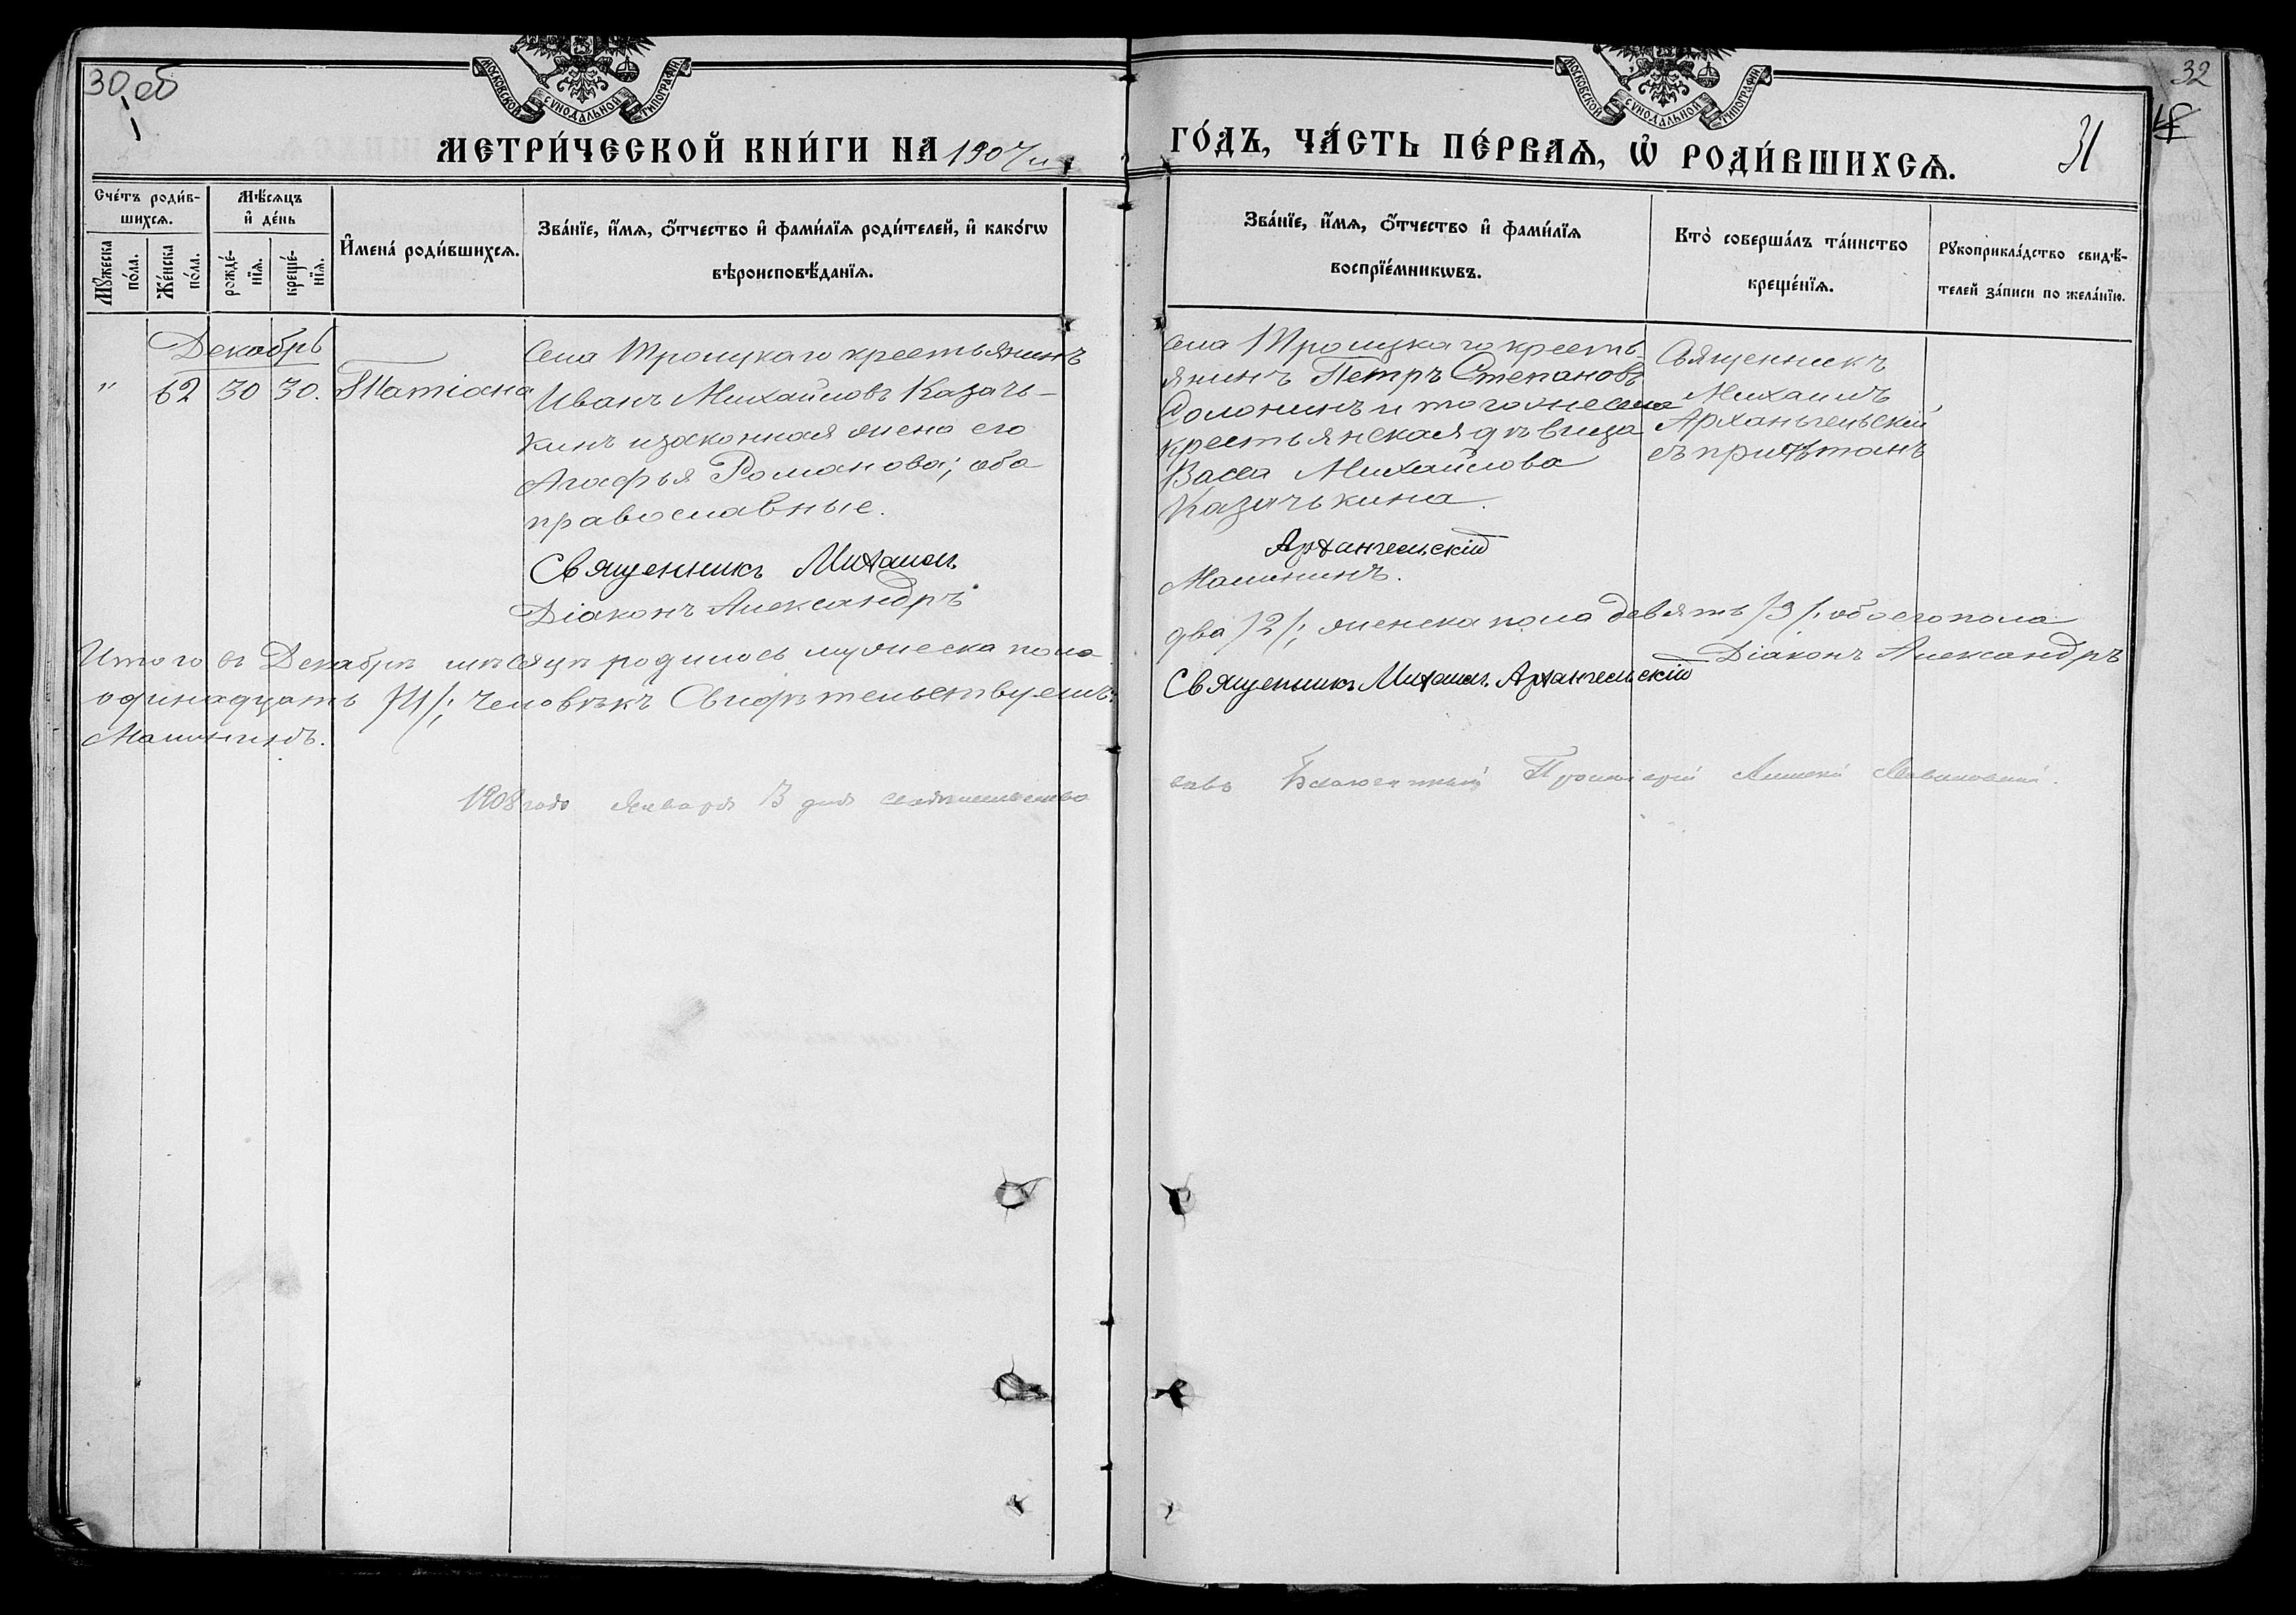 30 об
32
МОСКОВСКОЙ СѴНОДАЛЬНОЙ ТИПОГРАФІИ
МОСКОВСКОЙ СѴНОДАЛЬНОЙ ТИПОГРАФІИ
МЕТРИ́ЧЕСКОЙ КНИ́ГИ НА 1907 й
ГО́ДЪ, ЧА́СТЬ ПЕ́РВАѦ, Ѡ҆ РОДИ́ВШИХСѦ.
31
Сче́тъ роди́в-
шихсѧ.
Мѹ́жеска по́ла.
Же́нска по́ла.
Мѣ́сѧцъ
и҆ де́нь
рожде́-
нїѧ.
креще́-
нїѧ.
И҆мена́ роди́вшихсѧ.
Зва́нїе, и҆́мѧ, ѻ҆́тчество и҆ фами́лїѧ роди́телей, и҆ како́гѡ
вѣроисповѣ́данїѧ.
Зва́нїе, и҆́мѧ, ѻ҆́тчество и҆ фами́лїѧ
воспрїе́мникѡвъ.
Кто̀ соверша́лъ та́инство
креще́нїѧ.
Рѹкоприкла́дство свидѣ́-
телей за́писи по жела́нїю.
Декабрь
" 62 30 30. Татіана
Села Троицкаго крестьянинъ
Иванъ Михайловъ Казачь-
кинъ и законная жена его
Агафья Романова; оба
православные.
Села Троицкаго кресть-
янинъ Петръ Степановъ
Солонинъ и того же села
крестьянская дѣвица
Васса Михайлова
Казачькина.
Священникъ
Михаилъ
Архангельскій
съ причтомъ
Священникъ Михаилъ Архангельскій
Діаконъ Александръ Малининъ.
Итого въ Декабрѣ мѣсяцѣ родилось мужеска пола два /2/; женска пола девять /9/; обоего пола
одинадцать /11/; человѣкъ Свидѣтельствуемъ: Священникъ Михаилъ Архангельскій Діаконъ Александръ
Малининъ.
1908 года Января 13 дня свидѣтельство
валъ Благочинный Протоіерей